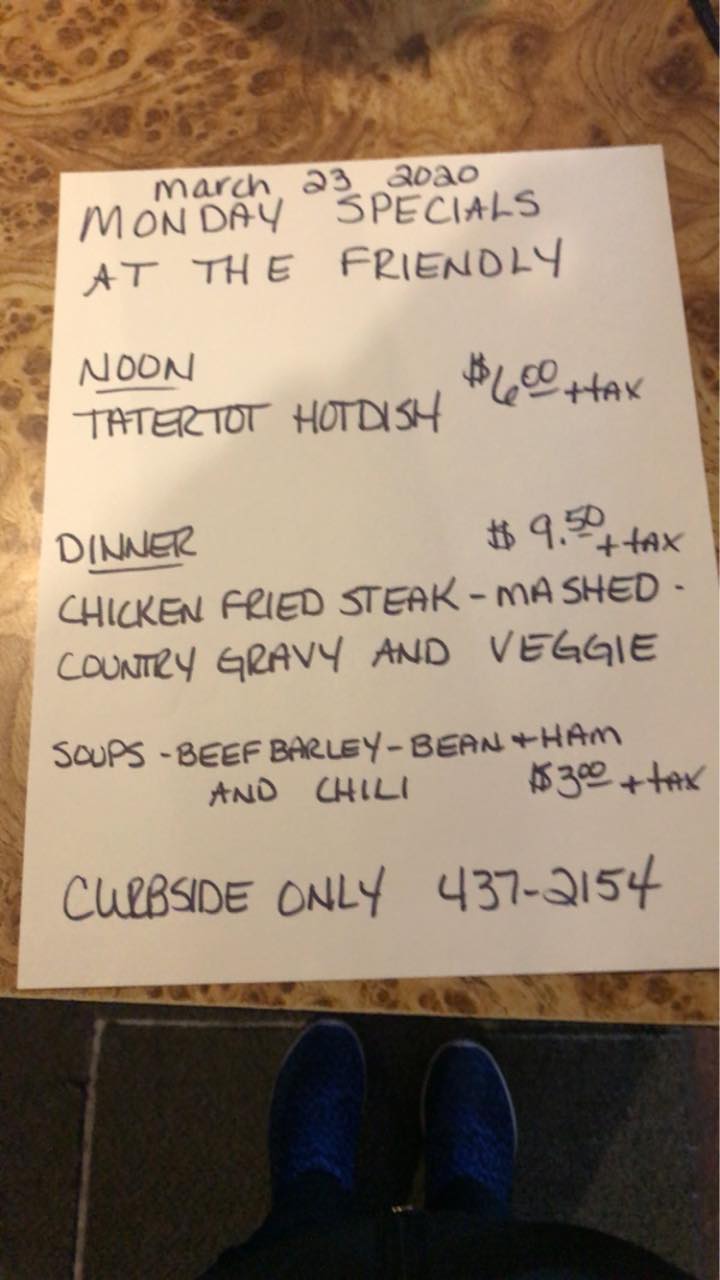 march 23 2020
MONDAY SPECIALS
AT THE FRIENDLY
NOON $6.00 + tAX
TATERTOT HOTDISH
DINNER $9.50 + tAX
CHICKEN FRIED STEAK - MASHED -
COUNTRY GRAVY AND VEGGIE
SOUPS - BEEF BARLEY - BEAN + HAM
AND CHILI $3.00 + tAX
CURBSIDE ONLY 437-2154